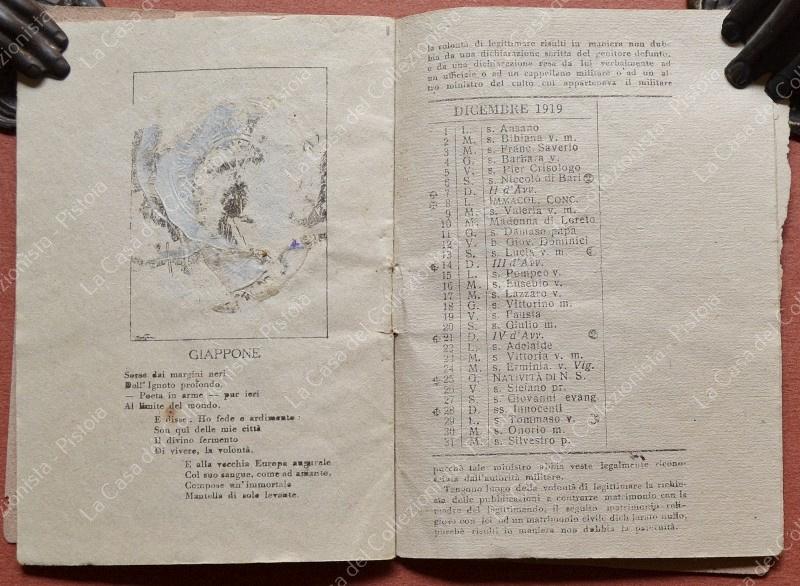 GIAPPONE
Sorse dai margini neri
Dell' Ignoto profondo,
— Poeta in arme — pur ieri
Al limite del mondo.
E disse: Ho fede e ardimento:
Son qui delle mie città
Il divino fermento
Di vivere, la volontà.
E alla vecchia Europa augurale
Col suo sangue, come ad amante,
Compose un'immortale
Mantella di sole levante.
la volontà di legittimare risulti in maniera non dub-
bia da una dichiarazione scritta del genitore defunto,
o da una dichiarazione resa da lui verbalmente ad
un ufficiale o ad un cappellano militare o ad un al-
tro ministro del culto cui apparteneva il militare
DICEMBRE 1919
1 L. s. Ansano
2 M. s. Bibiana v. m.
3 M. s. Franc. Saverio
4 G. s. Barbara v.
5 V. s. Pier Crisologo
6 S. s. Niccolò di Bari
7 D. II d'Avv.
8 L. IMMACOL. CONC.
9 M. s. Valeria v. m.
10 M. Madonna di Loreto
11 G. s. Damaso papa
12 V. b. Giov. Dominici
13 S. s. Lucia v. m
14 D. III d'Avv.
15 L. s. Pompeo v.
16 M. s. Eusebio v.
17 M. s. Lazzaro v.
18 G. s. Vittorino m.
19 V. s. Fausta
20 S. s. Giulio m.
21 D. IV d'Avv.
22 L. s. Adelaide
23 M. s. Vittoria v. m.
24 M. s. Erminia v. Vig.
25 G. NATIVITÀ DI N. S.
26 V. s. Stefano pr.
27 S. s. Giovanni evang.
28 D. ss. Innocenti
29 L. s. Tommaso v.
30 M. s. Onorio m.
31 M. s. Silvestro p.
purchè tale ministro abbia veste legalmente ricono-
sciuta dall'autorità militare.
Tengono luogo della volontà di legittimare la richie-
sta delle pubblicazioni a contrarre matrimonio con la
madre del legittimando, il seguito matrimonio reli-
gioso con lei od un matrimonio civile dichiarato nullo,
purchè risulti in maniera non dubbia la paternità.
La Casa del Collezionista - Pistoia